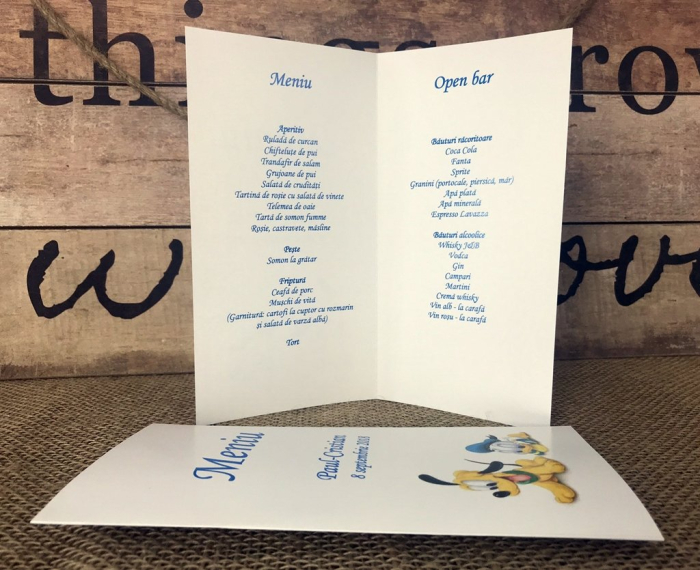 things
Meniu
Aperitiv
Ruladă de curcan
Chifteluțe de pui
Trandafir de salam
Grujoane de pui
Salată de crudități
Tartină de roșie cu salată de vinete
Telemea de oaie
Tartă de somon fumme
Roșie, castravete, măsline
Pește
Somon la grătar
Friptură
Ceafă de porc
Mușchi de vită
(Garnitură: cartofi la cuptor cu rozmarin
și salată de varză albă)
Tort
Open bar
Băuturi răcoritoare
Coca Cola
Fanta
Sprite
Granini (portocale, piersică, măr)
Apă plată
Apă minerală
Espresso Lavazza
Băuturi alcoolice
Whisky J&B
Vodca
Gin
Campari
Martini
Cremă whisky
Vin alb - la carafă
Vin roșu - la carafă
Meniu
Paul-Cristian
8 septembrie 2018